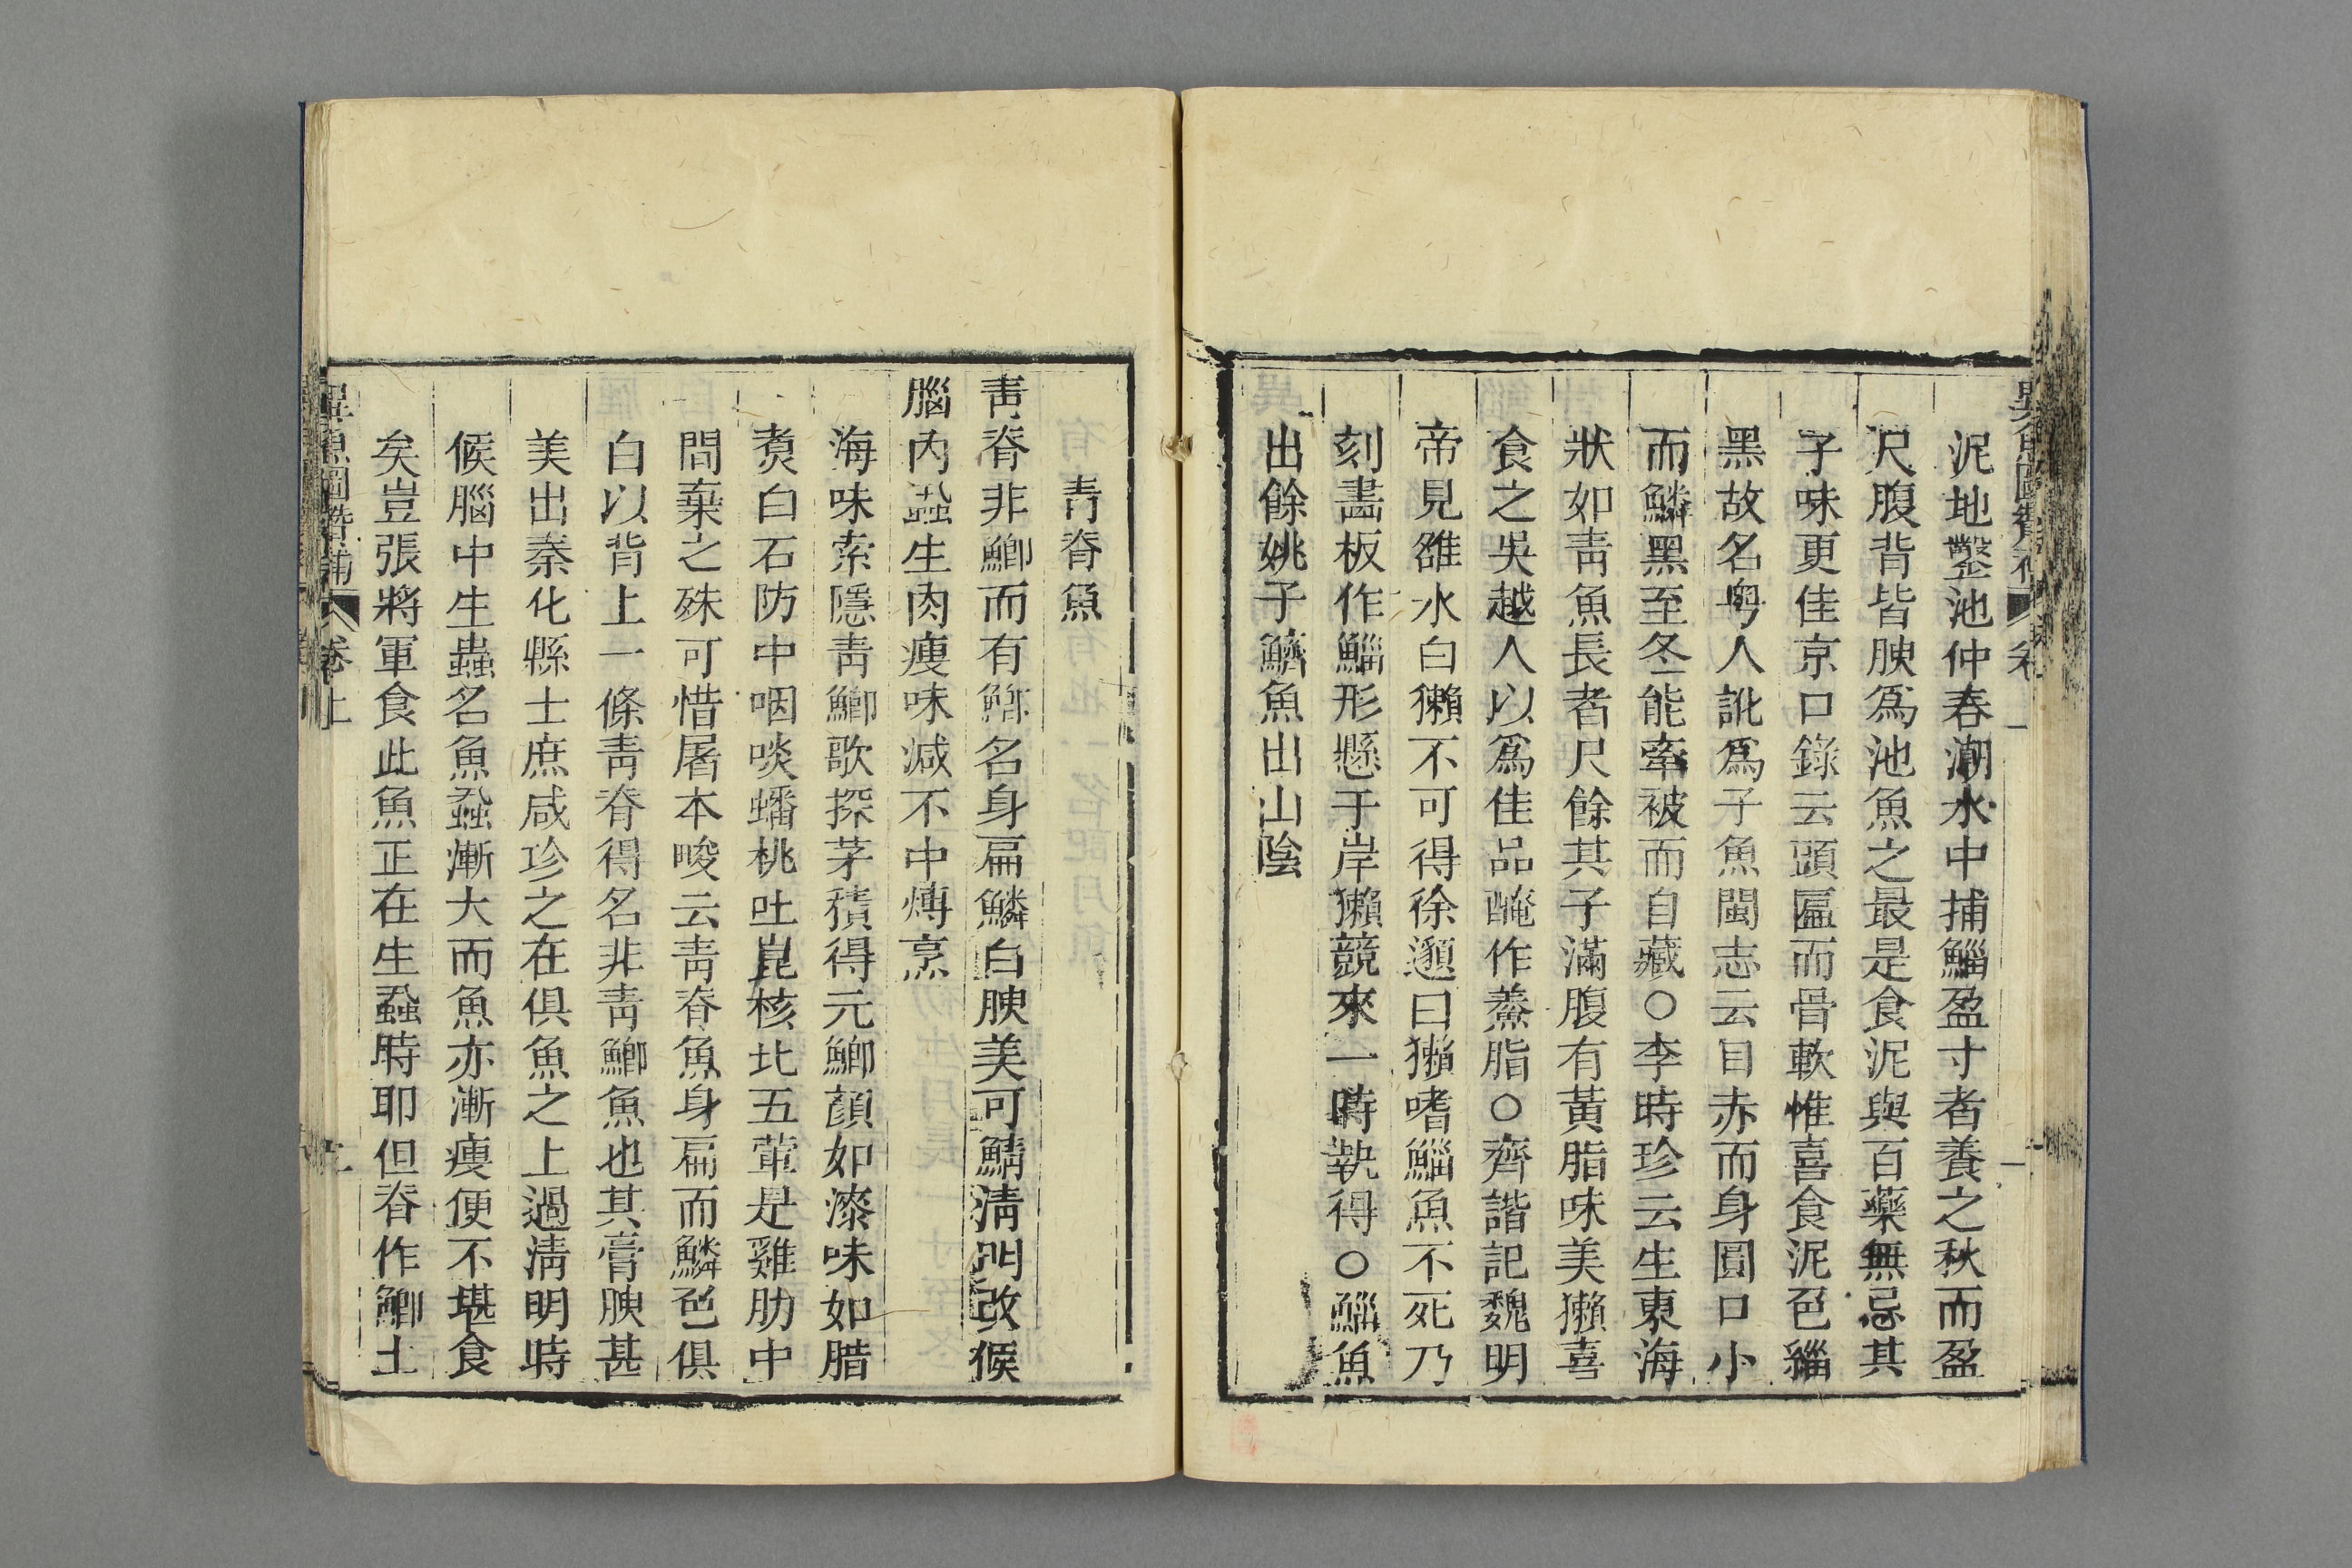 泥地鑿池仲春潮水中捕鯔盈寸者養之秋而盈
尺腹背皆腴爲池魚之最是食泥與百藥無忌其
子味更佳京口錄云頭匾而骨軟惟喜食泥色緇
黑故名粤人訛爲子魚閩志云目赤而身圓口小
而鱗黑至冬能牽被而自藏○李時珍云生東海
狀如靑魚長者尺餘其子滿腹有黃脂味美獺喜
食之吳越人以爲佳品醃作鮝脂○齊諧記魏明
帝見雒水白獺不可得徐邈曰獺嗜鯔魚不死乃
刻畵板作鯔形懸于岸獺競來一時執得○鯔魚
出餘姚子鱭魚出山陰
靑脊魚
靑脊非鯽而有鯽名身扁鱗白腴美可鯖淸門改候
腦內蝨生肉瘦味減不中煿烹
海味索隱靑鯽歌探茅積得元鯽顔如漆味如腊
煑白石防中咽啖蟠桃吐崑核北五葷是雞肋中
問棄之殊可惜屠本畯云靑脊魚身扁而鱗色俱
白以背上一條靑脊得名非靑鯽魚也其膏腴甚
美出奉化縣士庶咸珍之在俱魚之上過淸明時
候腦中生蟲名魚蝨漸大而魚亦漸瘦便不堪食
矣豈張將軍食此魚正在生蝨時耶但脊作鯽土
異魚圖贊補 卷上